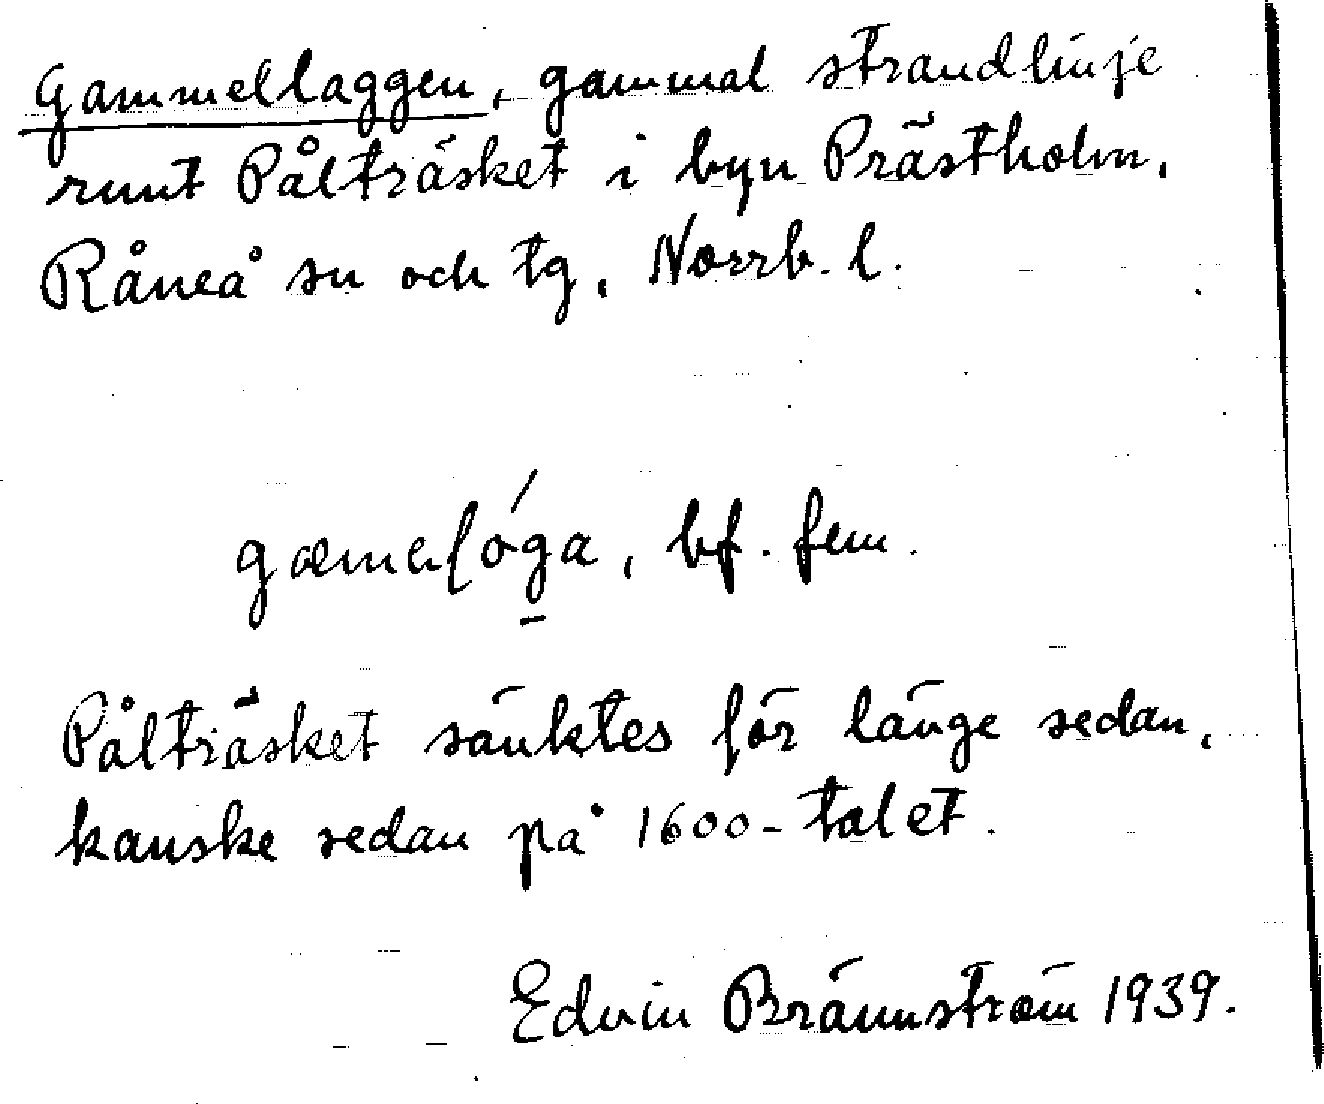 Gammellaggen, gammal strandlinje
runt Pålträsket i byn Prästholm,
Råneå sn och tg, Norrb. l.
gæmelóga, bf. fem.
Pålträsket sänktes för länge sedan,
kanske sedan på 1600-talet.
Edvin Brännström 1939.